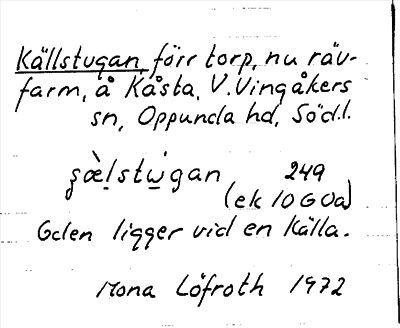 Källstugan, förr torp, nu räv-
farm, å Kåsta, V. Vingåkers
sn, Oppunda hd, Söd.l.
ʂæ̀l̥stu̇gan 249
(ek 10 G 0a)
Gden ligger vid en källa.
Mona Löfroth 1972